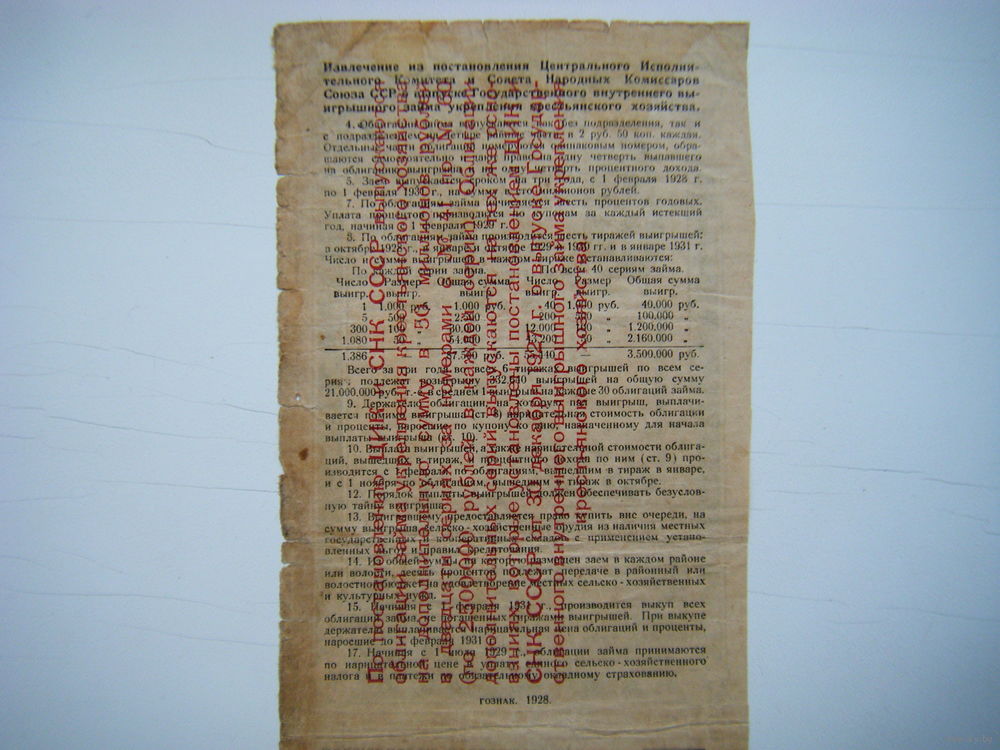 Извлечение из постановления Центрального Исполни-
тельного Комитета и Совета Народных Комиссаров
Союза ССР о выпуске Государственного внутреннего вы-
игрышного займа укрепления крестьянского хозяйства.
4. Облигации займа выпускаются как без подразделения, так и
с подразделением на четыре равные части в 2 руб. 50 коп. каждая.
Отдельные части облигации нумеруются одинаковым номером, обра-
щаются самостоятельно и дают право на одну четверть выпавшего
на облигацию выигрыша и на одну четверть процентного дохода.
5. Заем выпускается сроком на три года, с 1 февраля 1928 г.
по 1 февраля 1931 г., на сумму в сто миллионов рублей.
7. По облигациям займа начисляется шесть процентов годовых.
Уплата процентов производится по купонам за каждый истекший
год, начиная с 1 февраля 1929 г.
8. По облигациям займа производится шесть тиражей выигрышей:
в октябре 1928 г., в январе и октябре 1929 и 1930 гг. и в январе 1931 г.
Число и сумма выигрышей в каждом тираже устанавливаются:
По каждой серии займа. По всем 40 сериям займа.
Число Размер Общая сумма Число Размер Общая сумма
выигр. выигр. выигр. выигр. выигр. выигр.
1 1.000 руб. 1.000 руб. 40 1.000 руб. 40.000 руб.
5 500 „ 2.500 „ 200 „ 100.000 „
300 100 „ 30.000 „ 12.000 100 „ 1.200.000 „
1.080 „ 54.000 „ 43.200 „ 2.160.000 „
1.386 87.500 руб. 55.440 3.500.000 руб.
Всего за три года во всех 6 тиражах выигрышей по всем се-
риям подлежат розыгрышу 332.640 выигрышей на общую сумму
21.000.000 руб., т.-е. в среднем 1 выигрыш на каждые 30 облигаций займа.
9. Держателю облигации, на которую пал выигрыш, выплачи-
вается помимо выигрыша (ст. 8) нарицательная стоимость облигации
и проценты, наросшие по купону ко дню, назначенному для начала
выплаты выигрыша (ст. 10).
10. Выплата выигрышей, а также нарицательной стоимости облига-
ций, вышедших в тираж, и процентного дохода по ним (ст. 9) про-
изводится с 1 февраля по облигациям, вышедшим в тираж в январе,
и с 1 ноября по облигациям, вышедшим в тираж в октябре.
12. Порядок выплаты выигрышей должен обеспечивать безуслов-
ную тайну выигрыша.
13. Выигравшему предоставляется право купить вне очереди, на
сумму выигрыша, сельско-хозяйственные орудия из наличия местных
государственных и кооперативных складов с применением устано-
вленных льгот и правил кредитования.
14. Из общей суммы, на которую размещен заем в каждом районе
или волости, десять процентов подлежат передаче в районный или
волостной бюджет на удовлетворение местных сельско-хозяйственных
и культурных нужд.
15. Начиная с 1 февраля 1931 г., производится выкуп всех
облигаций займа, не погашенных тиражами выигрышей. При выкупе
держателю выплачивается нарицательная цена облигаций и проценты,
наросшие до 1 февраля 1931 г.
17. Начиная с 1 июля 1929 г., облигации займа принимаются
по нарицательной цене в уплату единого сельско-хозяйственного
налога и в платежи по обязательному окладному страхованию.
ГОЗНАК. 1928.
По постановлению ЦИК и СНК СССР выпускаются
облигации займа укрепления крестьянского хозяйства
на дополнительную сумму в 50 миллионов рублей
в двадцати сериях за номерами с № 41 по № 60
(по 2.500.000 рублей в каждой серии). Облигации
дополнительных серий выпускаются на тех же осно-
ваниях, которые установлены постановлением ЦИК и
СНК СССР от 31 декабря 1927 г. о выпуске Государ-
ственного внутреннего выигрышного займа укрепления
крестьянского хозяйства